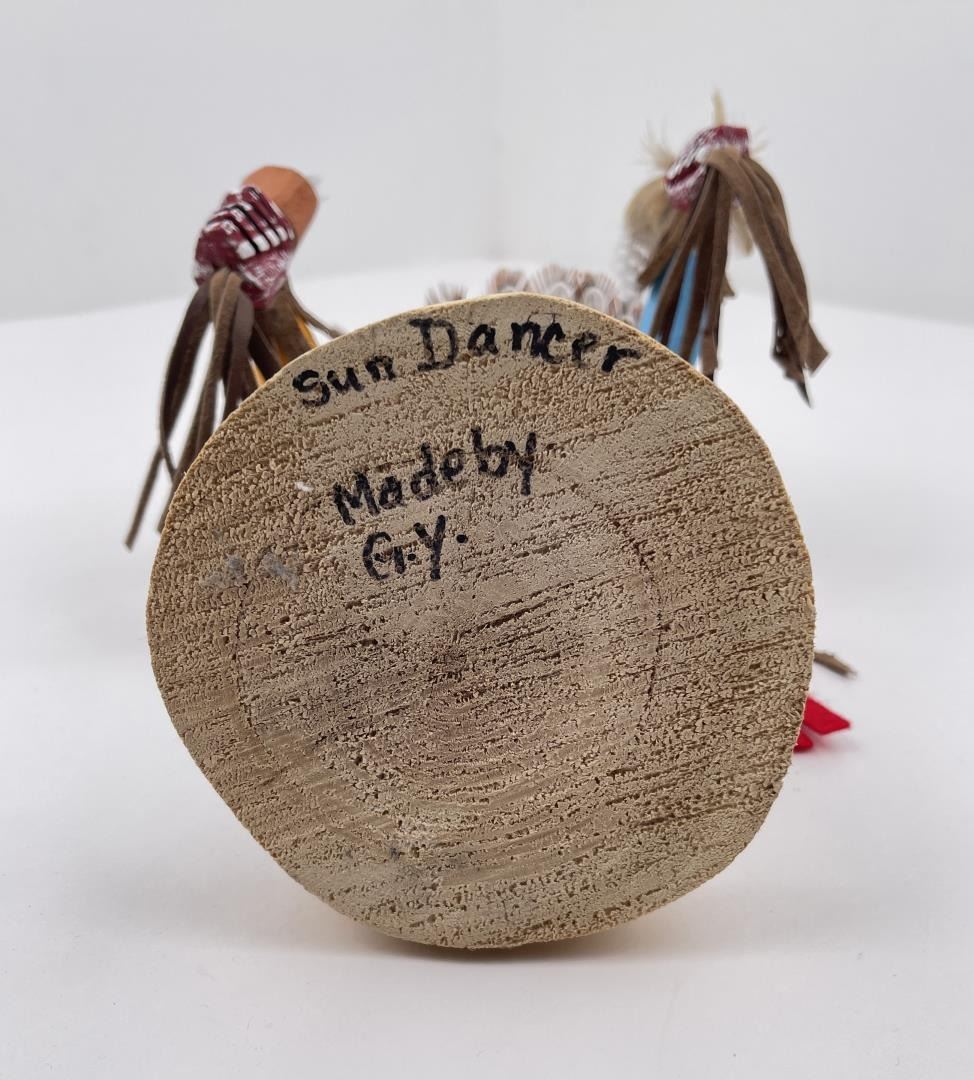 Sun Dancer
Made by
G.Y.